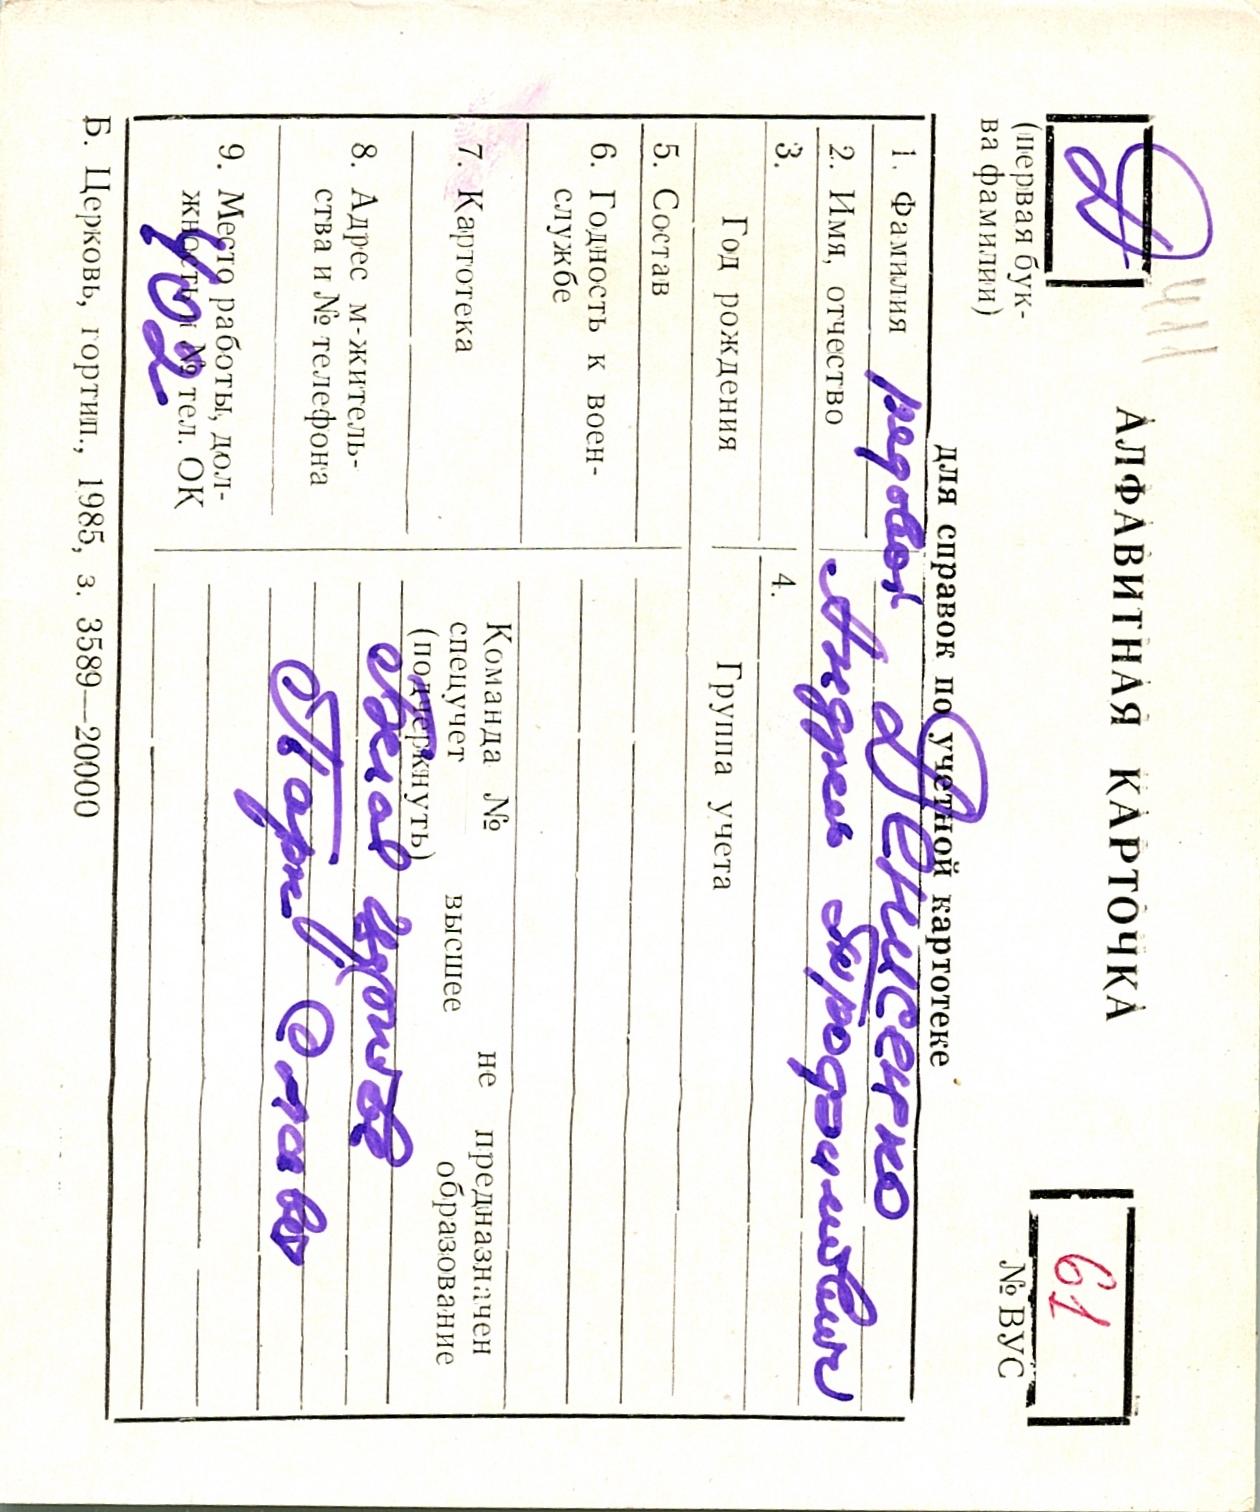 Д
411
АЛФАВИТНАЯ КАРТОЧКА
61
(первая бук-
ва фамилии)
№ ВУС
для справок по учетной картотеке
1. Фамилия рядовой Денисенко
2. Имя, отчество Андрей
3.
4.
Год рождения
Группа учета
5. Состав
6. Годность к воен-
службе
7. Картотека
Команда № не предназначен
спецучет высшее образование
(подчеркнуть)
8. Адрес м-житель-
ства и № телефона
9. Место работы, дол-
жность и № тел. ОК
402
Парк Славы
Б. Церковь, гортип., 1985, з. 3589—20000